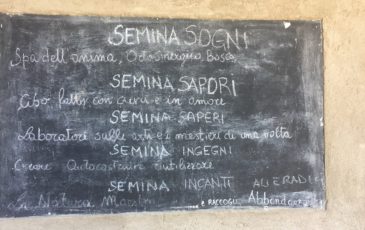 SEMINA SOGNI
Spa dell'anima, Bosco
SEMINA SAPORI
Cibo fatto con cura e in amore
SEMINA SAPERI
Laboratori sulle arti e i mestieri di una volta
SEMINA INGEGNI
Creare Autocostruire riutilizzare
SEMINA INCANTI ALI E RADICI
La Natura Maestra e RACCOGLI Abbondanza